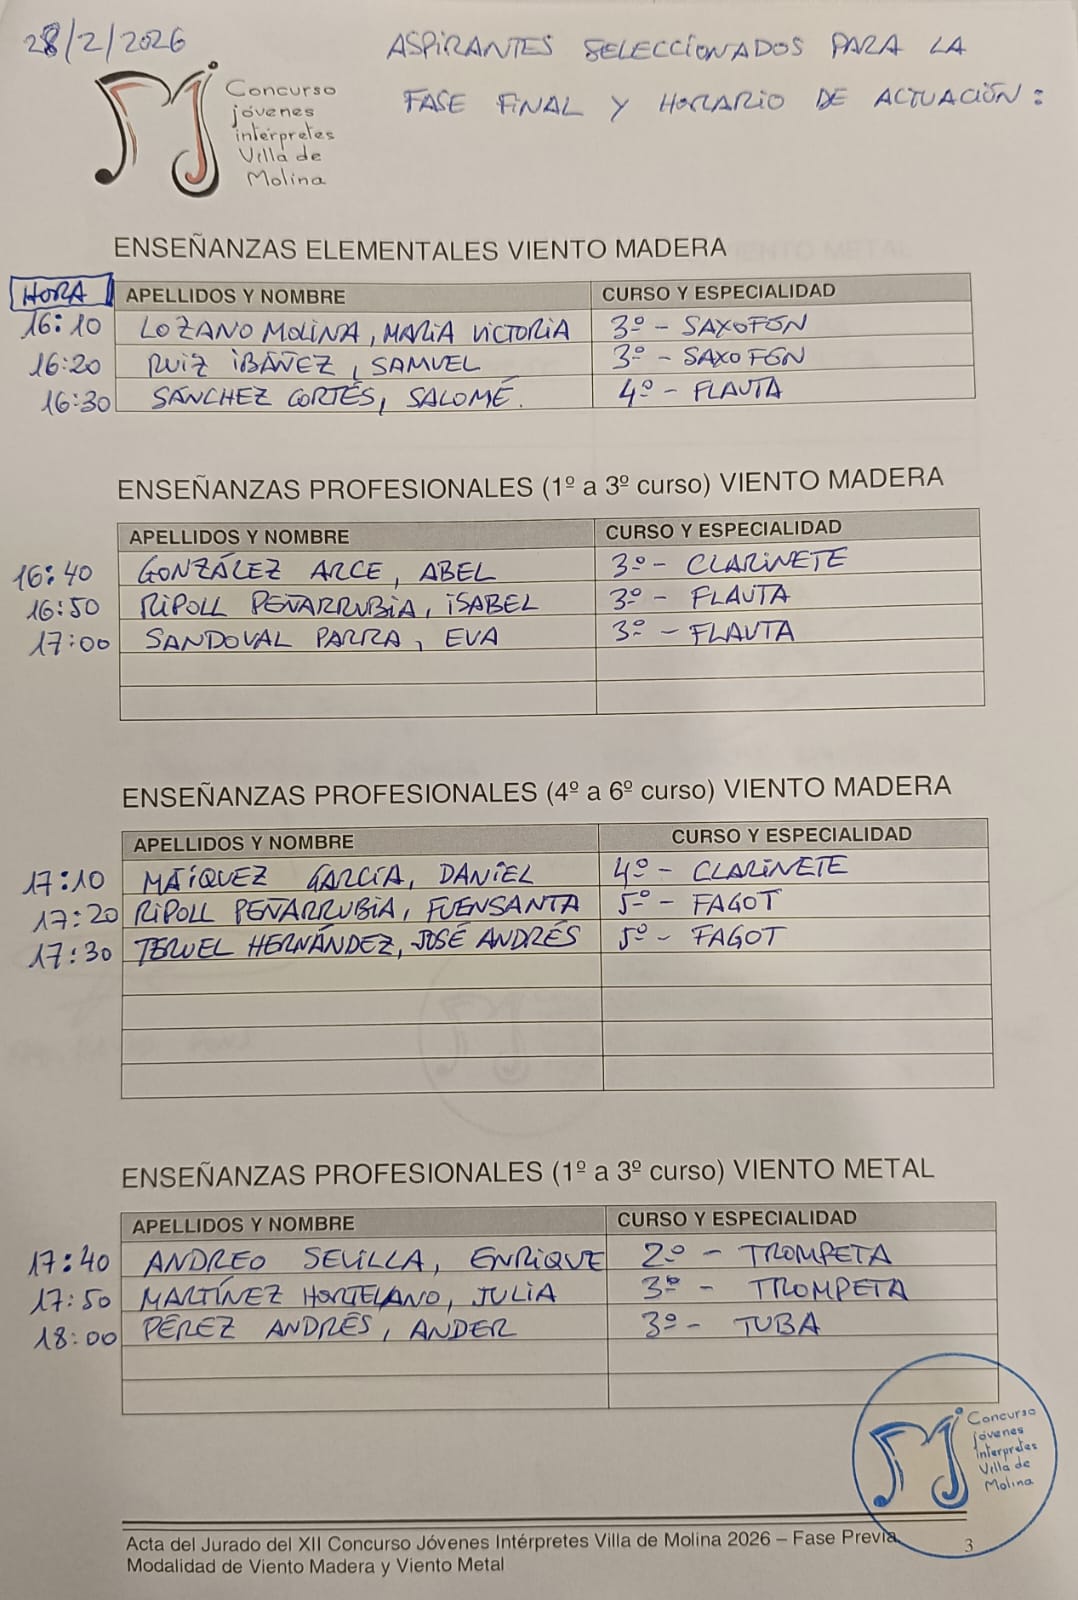 28/2/2026
ASPIRANTES SELECCIONADOS PARA LA
FASE FINAL Y HORARIO DE ACTUACIÓN:
Concurso
jóvenes
intérpretes
Villa de
Molina
ENSEÑANZAS ELEMENTALES VIENTO MADERA
HORA APELLIDOS Y NOMBRE CURSO Y ESPECIALIDAD
16:10 LOZANO MOLINA, MARIA VICTORIA 3º - SAXOFÓN
16:20 RUIZ IBÁÑEZ, SAMUEL 3º - SAXOFÓN
16:30 SÁNCHEZ CORTÉS, SALOMÉ. 4º - FLAUTA
ENSEÑANZAS PROFESIONALES (1º a 3º curso) VIENTO MADERA
APELLIDOS Y NOMBRE CURSO Y ESPECIALIDAD
16:40 GONZÁLEZ ARCE, ABEL 3º - CLARINETE
16:50 RIPOLL PEÑARRUBIA, ISABEL 3º - FLAUTA
17:00 SANDOVAL PARRA, EVA 3º - FLAUTA
ENSEÑANZAS PROFESIONALES (4º a 6º curso) VIENTO MADERA
APELLIDOS Y NOMBRE CURSO Y ESPECIALIDAD
17:10 MÁIQUEZ GARCÍA, DANIEL 4º - CLARINETE
17:20 RIPOLL PEÑARRUBIA, FUENSANTA 5º - FAGOT
17:30 TERUEL HERNÁNDEZ, JOSÉ ANDRÉS 5º - FAGOT
ENSEÑANZAS PROFESIONALES (1º a 3º curso) VIENTO METAL
APELLIDOS Y NOMBRE CURSO Y ESPECIALIDAD
17:40 ANDREO SEVILLA, ENRIQUE 2º - TROMPETA
17:50 MARTÍNEZ HORTELANO, JULIA 3º - TROMPETA
18:00 PÉREZ ANDRÉS, ANDER 3º - TUBA
Concurso
jóvenes
intérpretes
Villa de
Molina
Acta del Jurado del XII Concurso Jóvenes Intérpretes Villa de Molina 2026 – Fase Previa 3
Modalidad de Viento Madera y Viento Metal